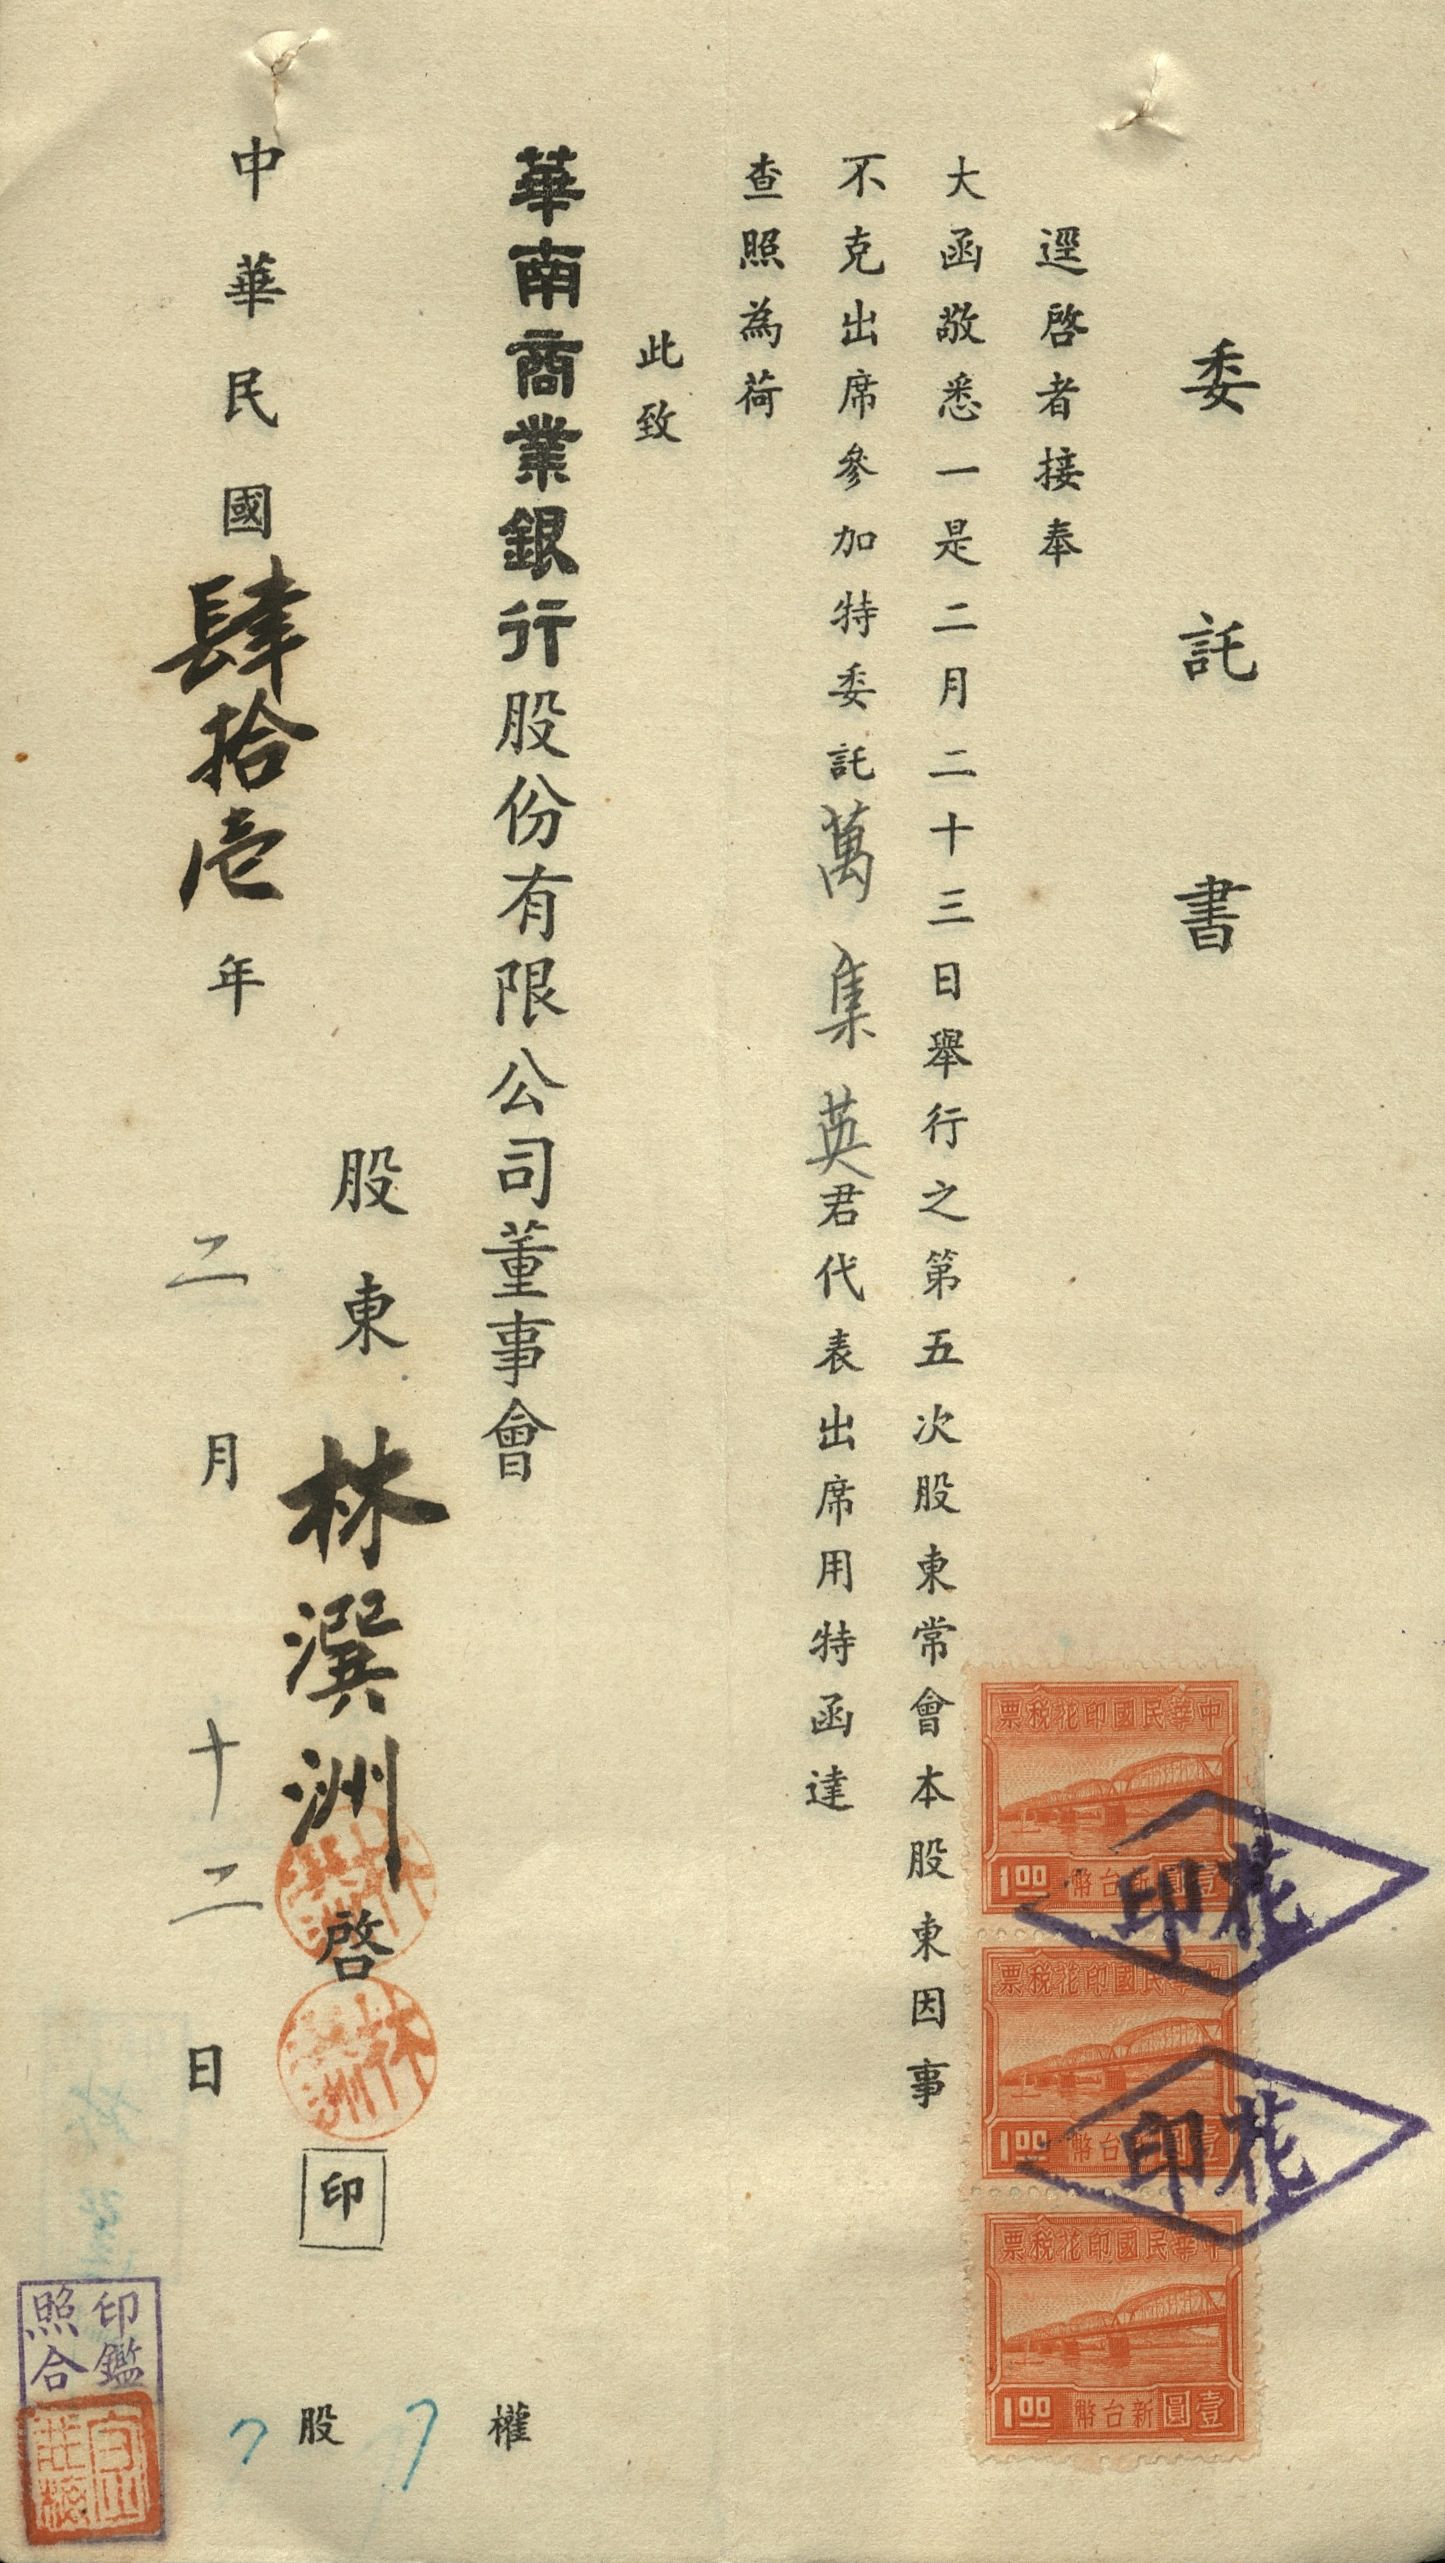 委託書
逕啓者接奉
大函敬悉一是二月二十三日舉行之第五次股東常會本股東因事
不克出席參加特委託萬集英君代表出席用特函達
查照為荷
此致
華南商業銀行股份有限公司董事會
股東 林潠洲 啓 印
中華民國肆拾壱年二月十二日
權 7
股 7
中華民國印花税票
壹圓新台幣 1.00
中華民國印花税票
壹圓新台幣 1.00
中華民國印花税票
壹圓新台幣 1.00
花印
花印
林
洲
林
洲
印鑑
照合